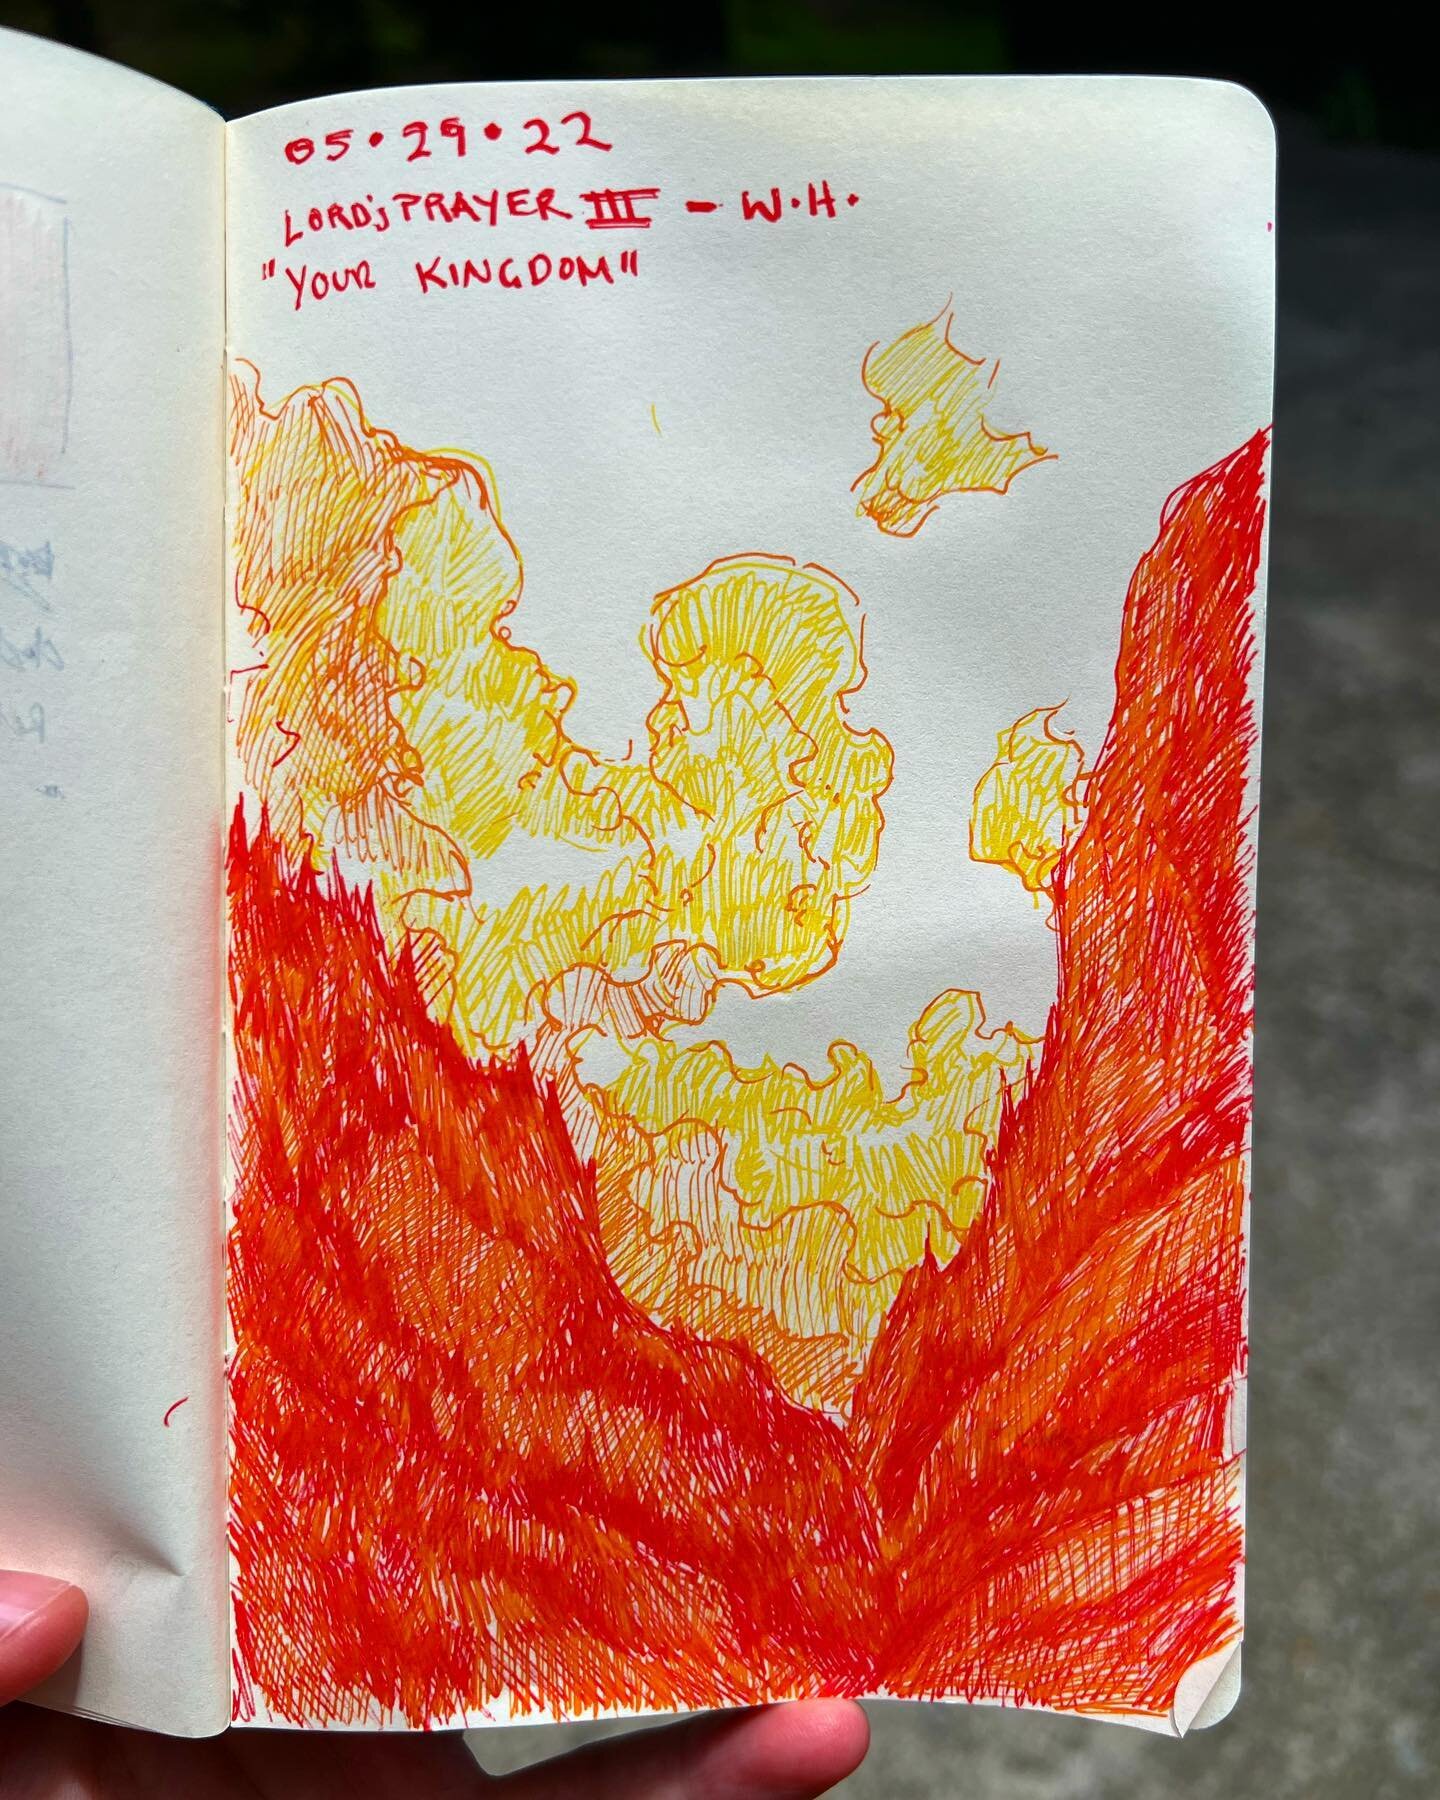 05•29•22
LORD'S PRAYER III - W.H.
"YOUR KINGDOM"